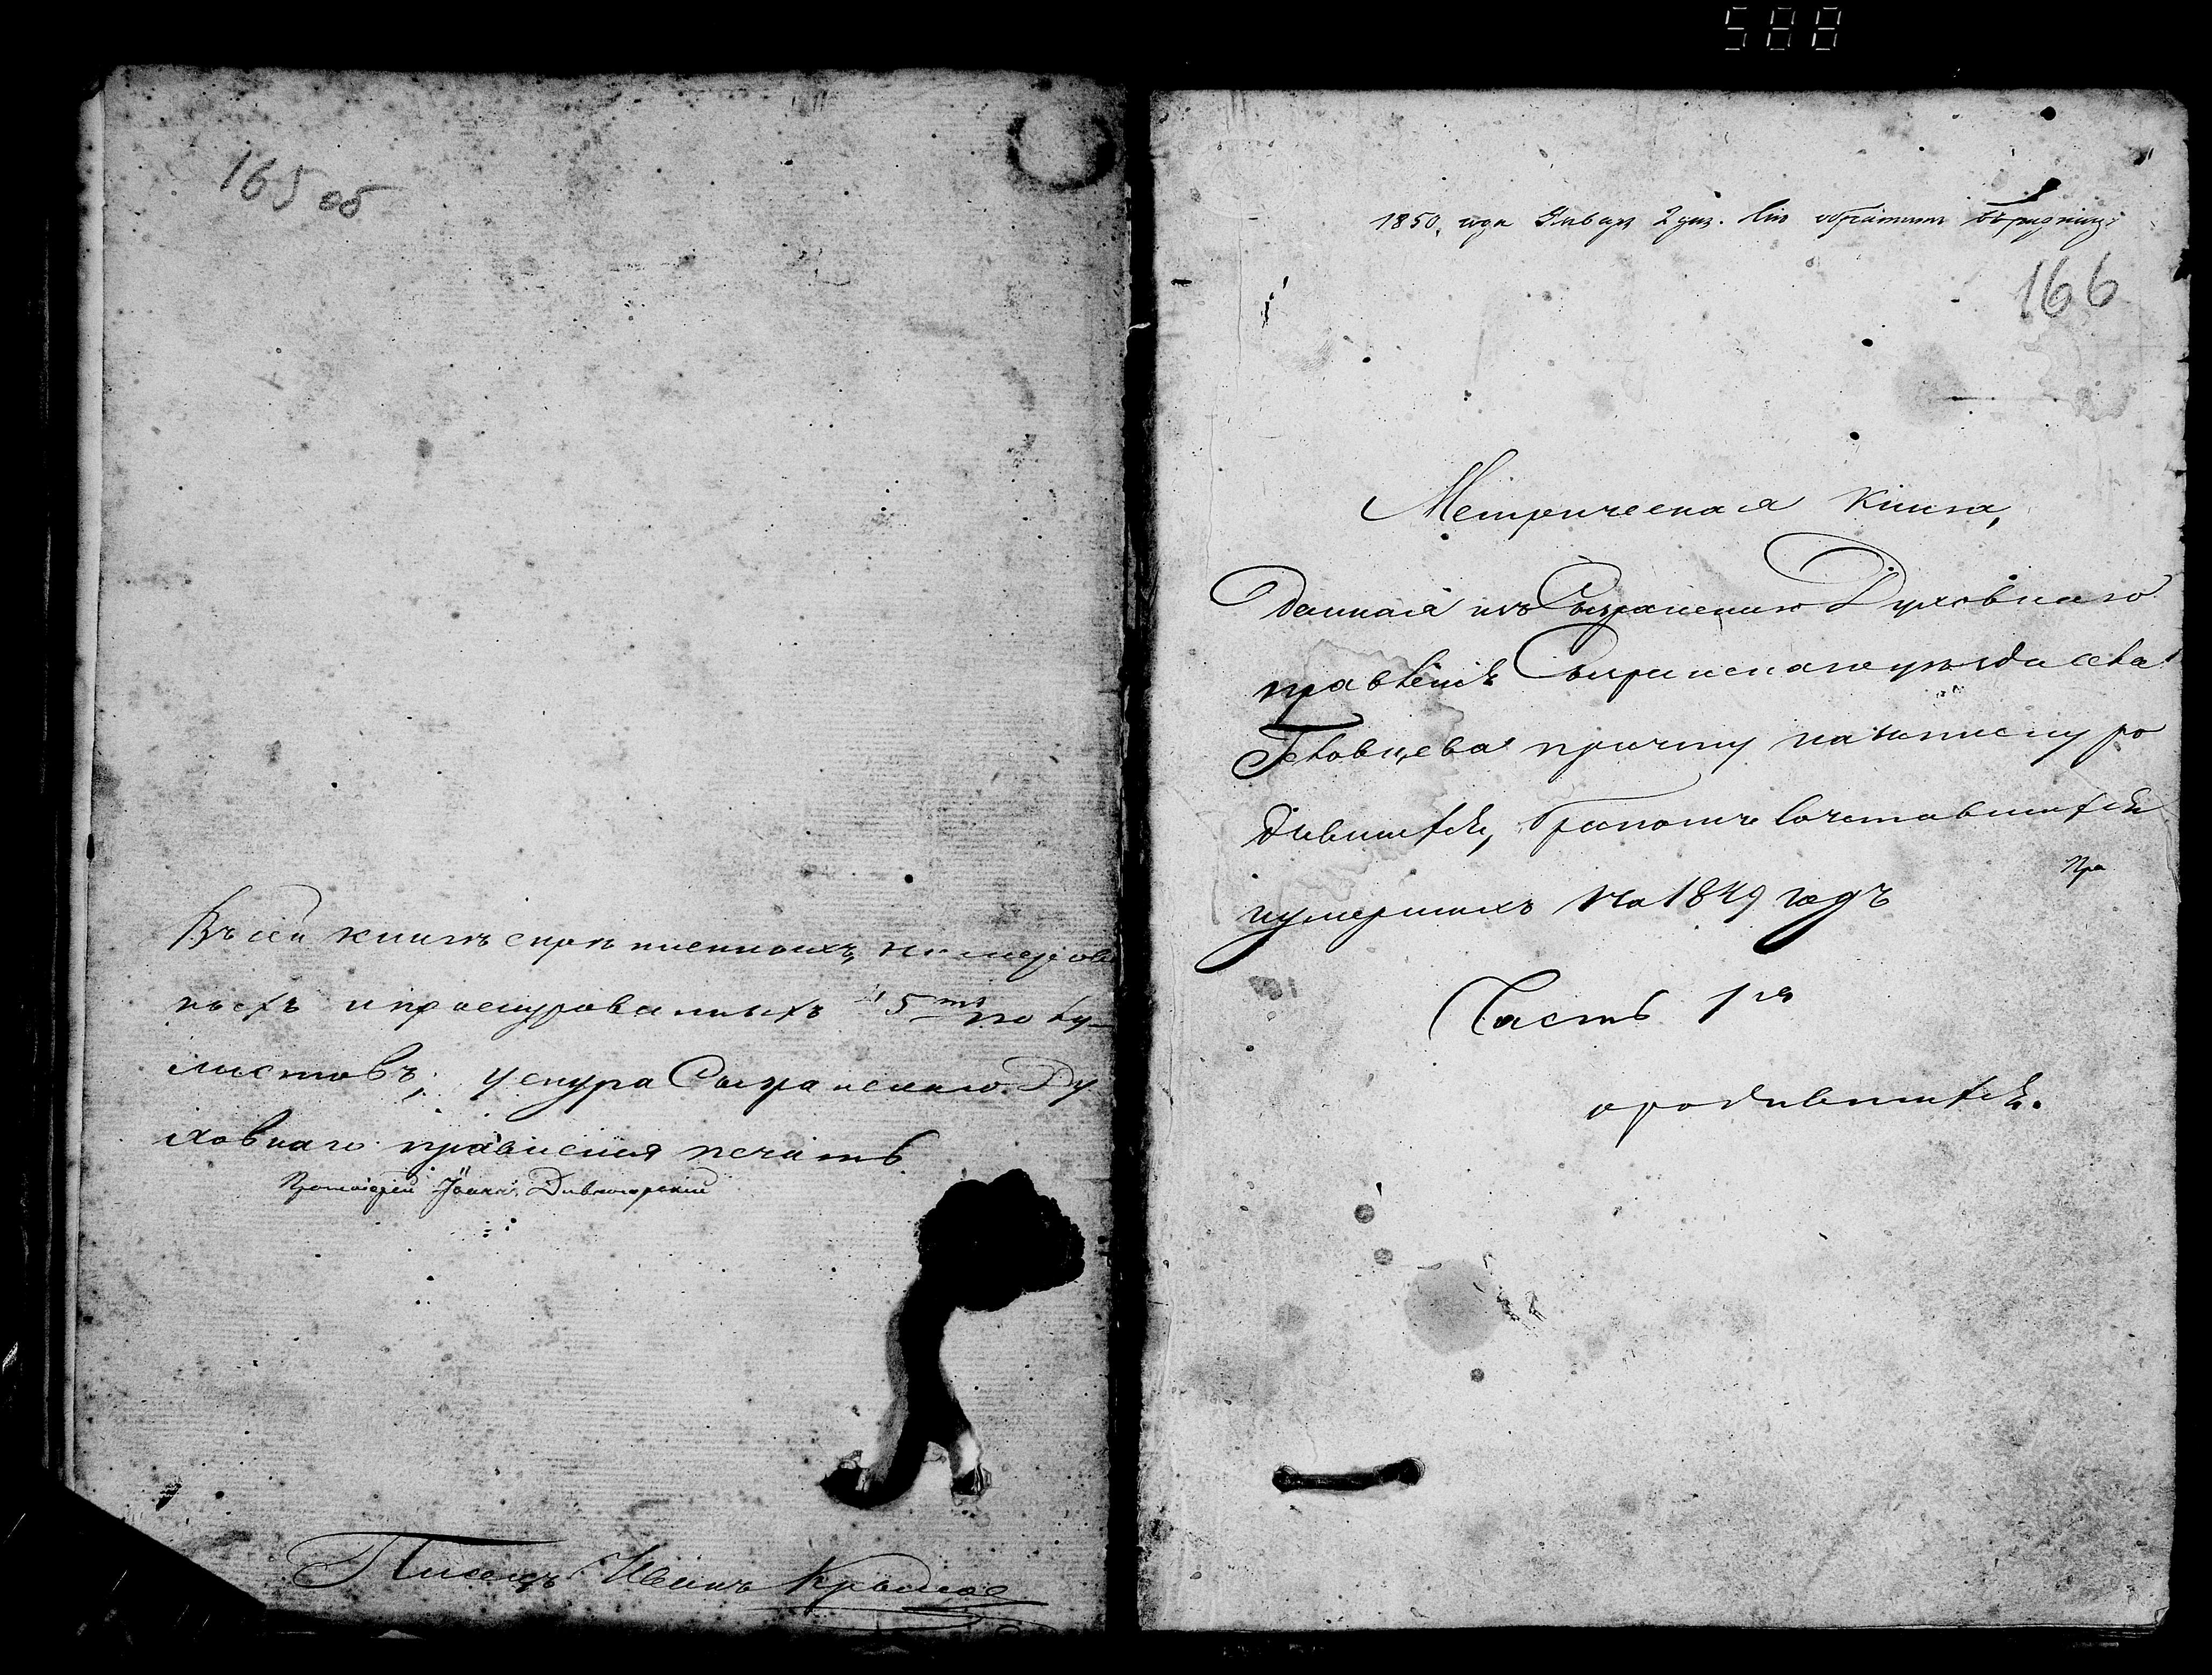 588
165 об
Въ сей книгѣ скрѣпленныхъ, нумерован
ныхъ и прошнурованныхъ 5ть по Ку
листовъ; у снура Сызранскаго Ду
ховнаго правленія печать
Протоіерей Іоаннъ Дивногорскій
Писецъ Иванъ Крыловъ
1850, года Января 2 дня.
166
Метрическая книга,
Данная изъ Сызранскаго Духовнаго
правленія Сызранскаго уѣзда села
причту на записку ро
дившихся, бракомъ сочетавшихся
и умершихъ на 1849 годъ
Про
Часть 1я
о родившихся.